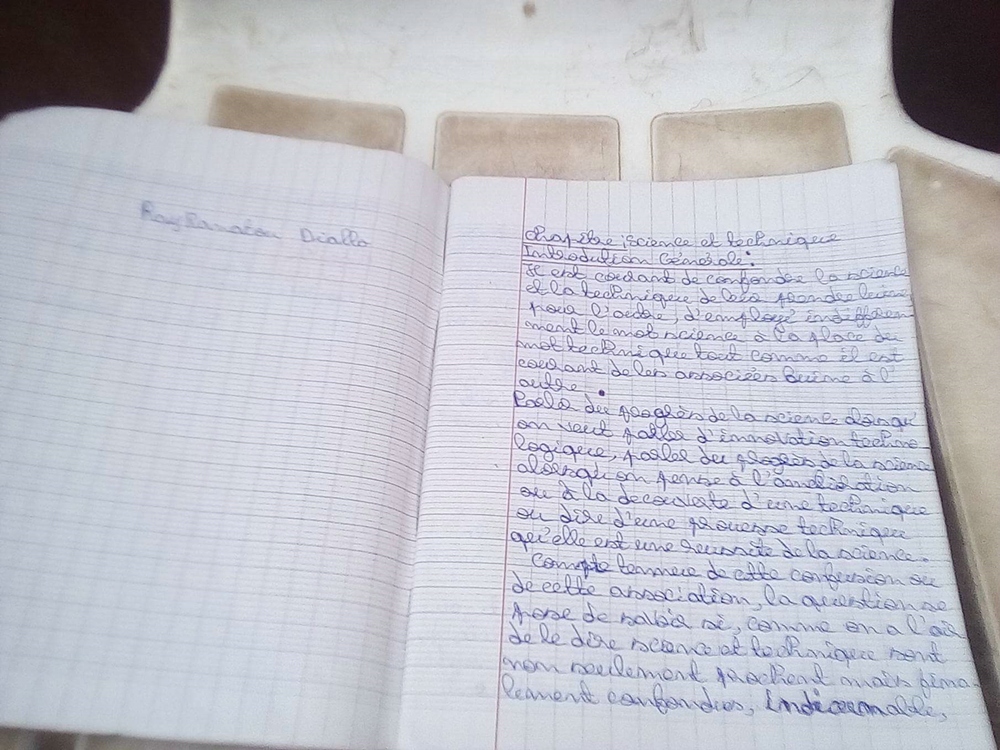 Diallo
chapitre : science et technique
Introdution Générale :
Il est courant de confondre la science
et la technique de les prendre l'une
pour l'autre, d'employé indifféren
ment le mot science à la place du
mot technique tout comme il est
courant de les associées l'une à l'
autre.
Parlé du progrès de la science alorsqu'
on veut parler d'innovation techno
logique, parler du progrès de la science
alorsqu'on pense à l'amélioration
ou à la decouverte d'une technique
ou dire d'une prouesse technique
qu'elle est une reussite de la science.
Compte tennue de cette confusion ou
de cette association, la question se
pose de savoir si, comme on a l'air
de le dire science et technique sont
non seulement prochent mais fina-
lement confondues, indicernable,